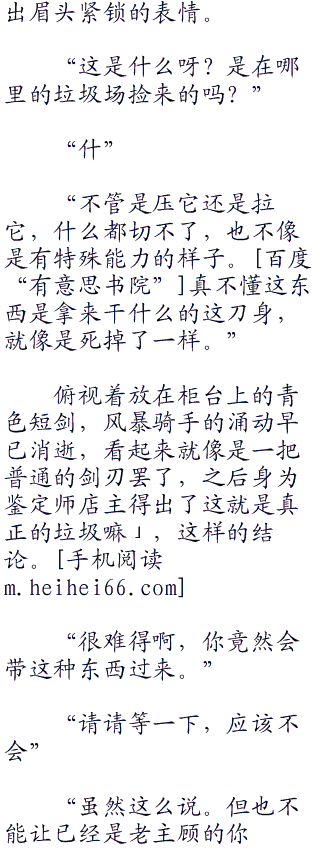 出眉头紧锁的表情。
“这是什么呀？是在哪
里的垃圾场捡来的吗？”
“什”
“不管是压它还是拉
它，什么都切不了，也不像
是有特殊能力的样子。[百度
“有意思书院”]真不懂这东
西是拿来干什么的这刀身，
就像是死掉了一样。”
俯视着放在柜台上的青
色短剑，风暴骑手的涌动早
已消逝，看起来就像是一把
普通的剑刃罢了，之后身为
鉴定师店主得出了这就是真
正的垃圾嘛」，这样的结
论。[手机阅读
m.heihei66.com]
“很难得啊，你竟然会
带这种东西过来。”
“请请等一下，应该不
会”
“虽然这么说。但也不
能让已经是老主顾的你